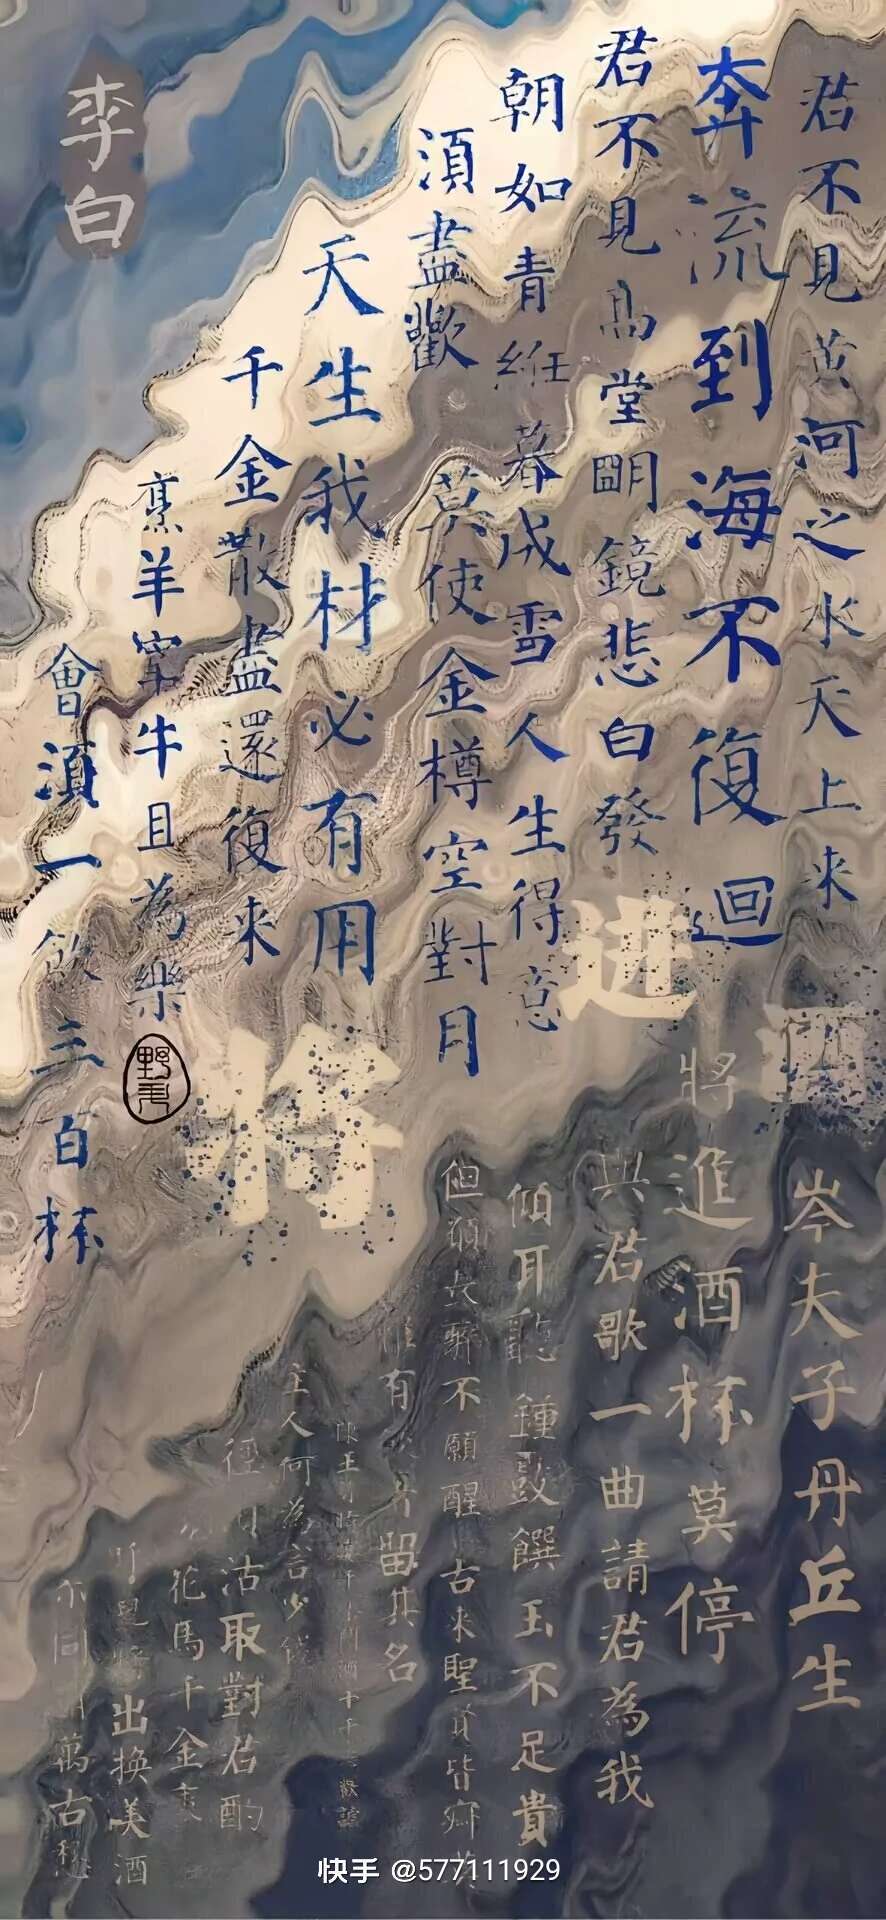 李白
君不見黄河之水天上来
奔流到海不復迴
君不見高堂朙鏡悲白發
朝如青暮成雪人生得意
須盡歡 莫使金樽空對月
天生我材必有用
千金散盡還復来
烹羊宰牛且為樂
會須一飲三百杯
野飛
将
进
酒
岑夫子丹丘生
將進酒杯莫停
與君歌一曲請君為我
傾耳聽鍾鼓饌玉不足貴
但願長醉不願醒古来聖賢皆
惟有飲者留其名
陳王
主人何為言少錢
徑須沽取對君酌
花馬千金裘
出換美酒
同萬古愁
快手 @577111929